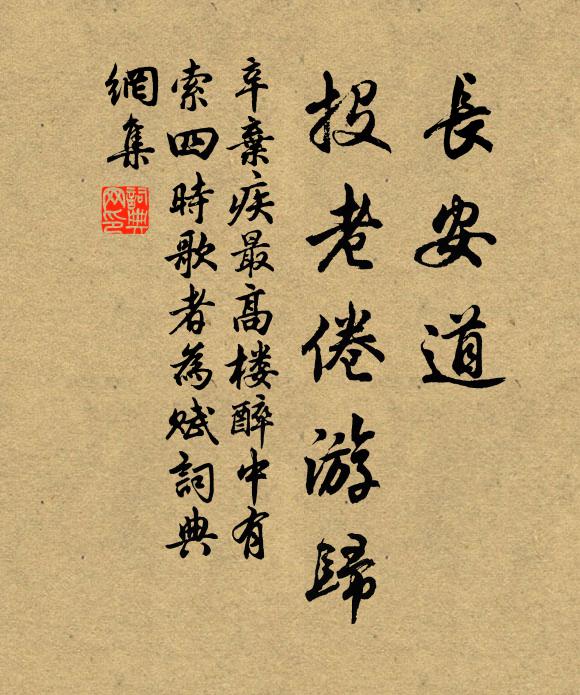 長安道
投老倦游歸
辛棄疾最高楼醉中有
索四時歌者為賦詞典
網集
詞典
网印